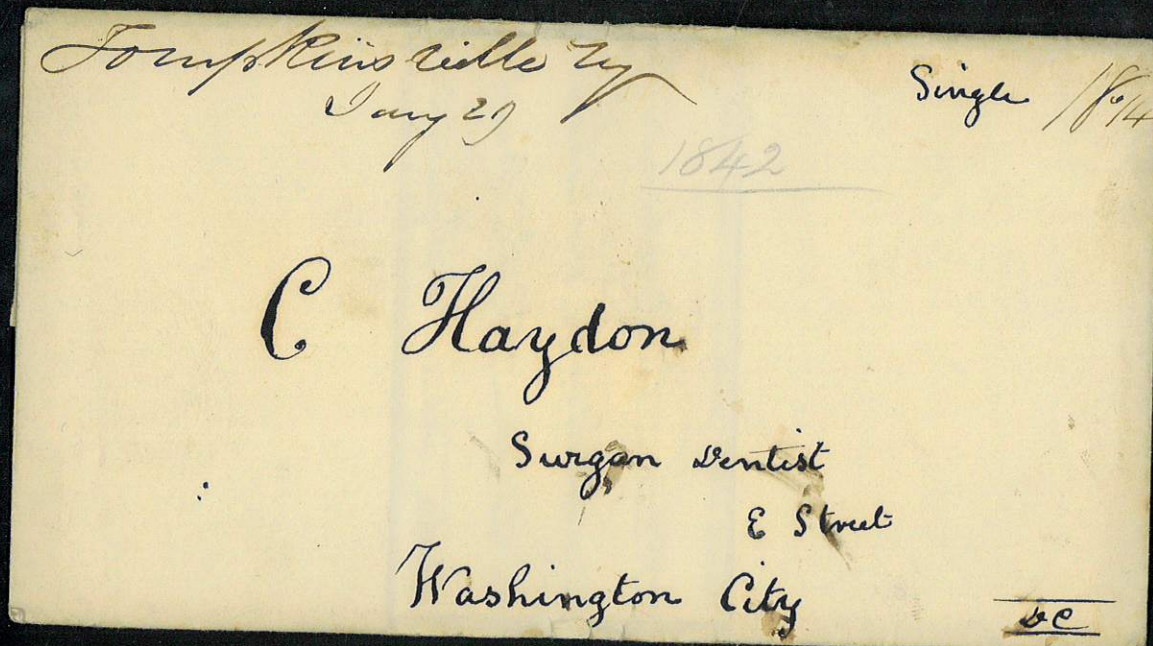 Tompkinsville Ky
Jany 29
Single 18¾
1842
C Haydon
Surgan Dentist
E Street
Washington City
DC